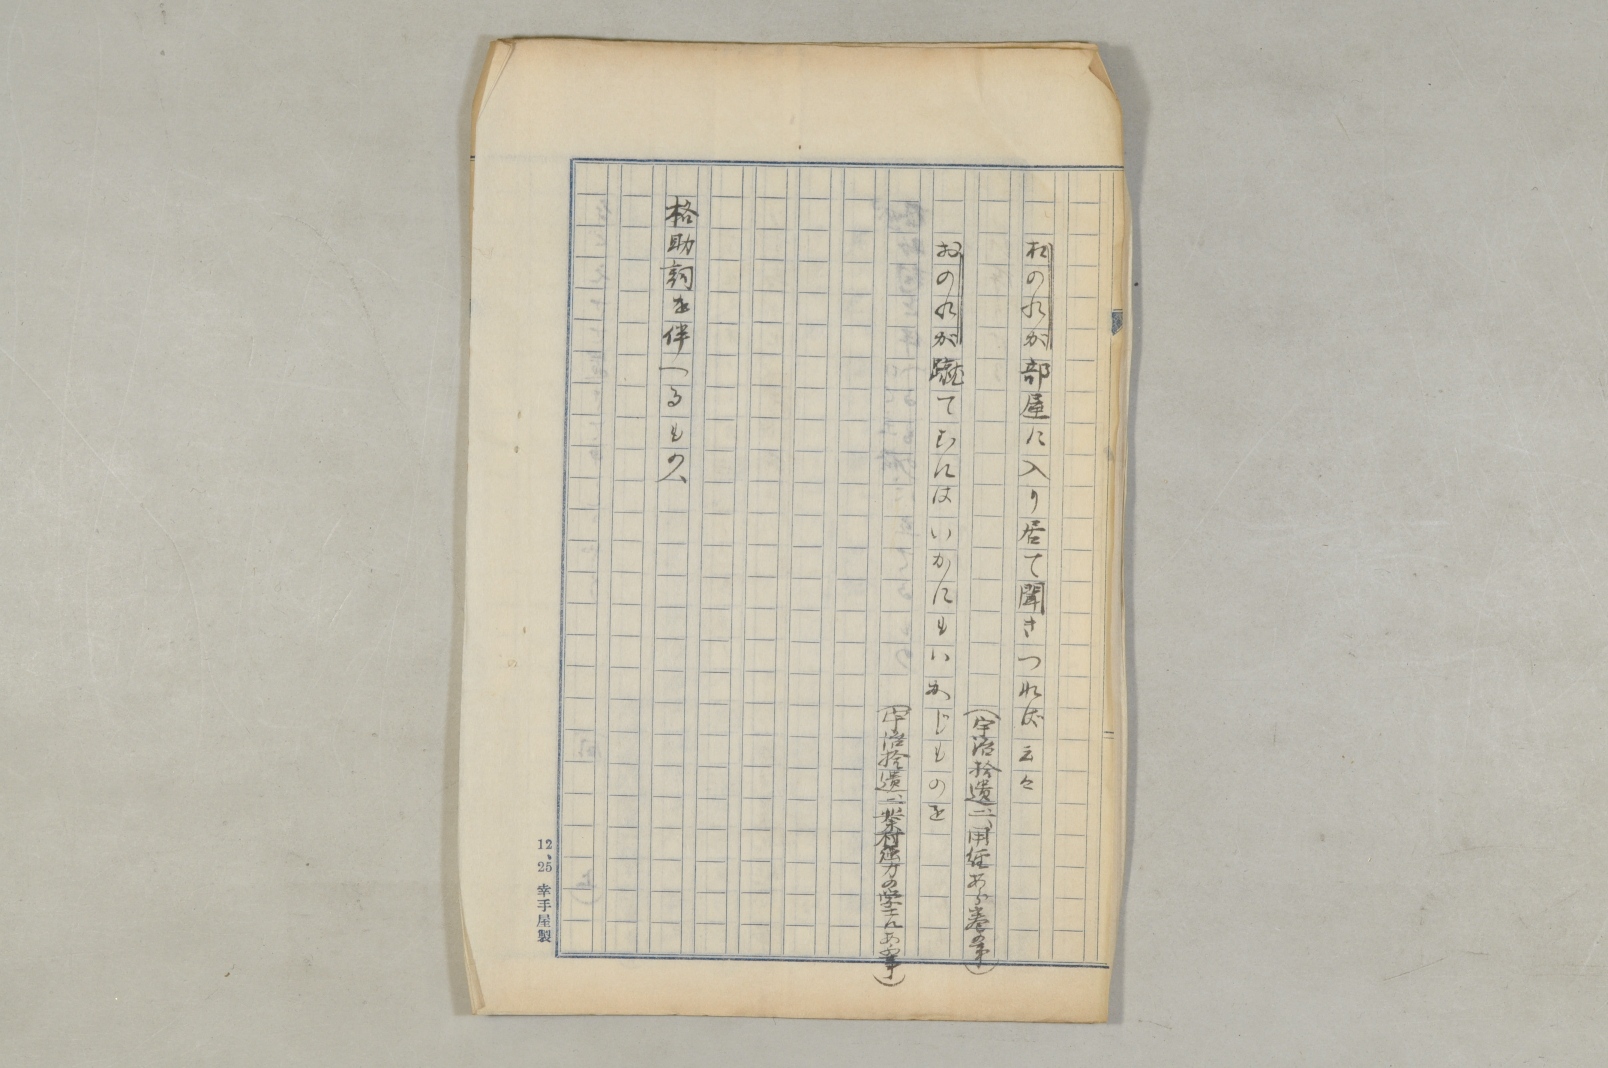 おのれが部屋に入り居て聞きつれば云々
(宇治拾遺二、用経あら巻の事)
おのれが蹴てむにはいかにもいかじものを
(宇治拾遺二、
格助詞を伴へるもの、
12、25 幸手屋製